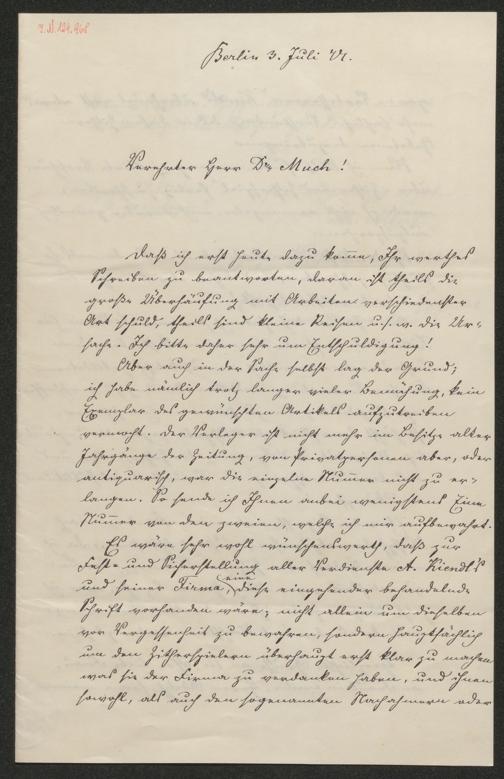 J.N. 124.968
Berlin 3. Juli 01.
Verehrter Herr Dr Much!
Daß ich erst heute dazu komme, Ihr werthes
Schreiben zu beantworten, daran ist theils die
große Überhäufung mit Arbeiten verschiedenster
Art schuld, theils sind kleine Reisen u.s.w. die Ur-
sache. Ich bitte daher sehr um Entschuldigung!
Aber auch in der Sache selbst lag der Grund;
ich habe nämlich trotz langer vieler Bemühung, kein
Exemplar des gewünschten Artikels aufzutreiben
vermocht. Der Verleger ist nicht mehr im Besitze alter
Jahrgänge der Zeitung, von Privatpersonen aber, oder
antiquarisch, war die einzelne Nummer nicht zu er-
langen. So sende ich Ihnen anbei wenigstens Eine
Nummer von den zweien, welche ich mir aufbewahrt.
Es wäre sehr wohl wünschenswerth, daß zur
Feste und Sicherstellung aller Verdienste A. Kiendl's
und seiner Firma, eine diese eingehender behandelnde
Schrift vorhanden wäre; nicht allein um dieselben
vor Vergessenheit zu bewahren, sondern hauptsächlich
um den Zitherspielern überhaupt erst klar zu machen
was sie der Firma zu verdanken haben, und ihnen
sowohl, als auch den sogenannten Nachahmern oder